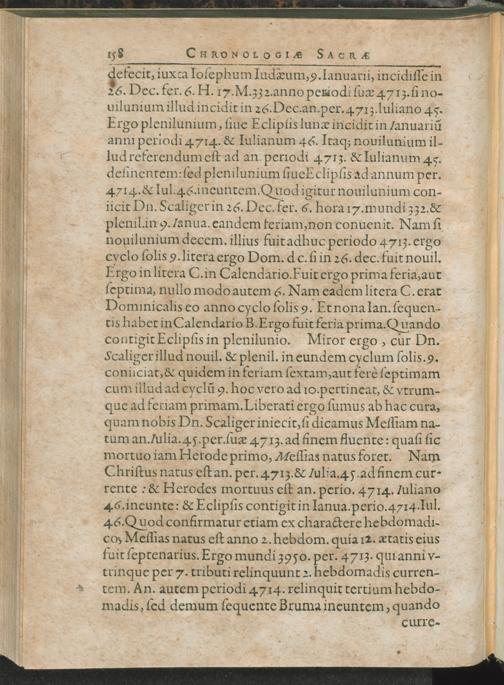 158 CHRONOLOGIÆ SACRÆ
defecit, iuxta Iosephum Iudæum, 9. Ianuarii, incidisse in
26. Dec. fer. 6. H. 17. M. 332. anno periodi suæ 4713. si no-
uilunium illud incidit in 26. Dec. an. per. 4713. Iuliano 45.
Ergo plenilunium, siue Eclipsis lunæ incidit in Ianuariũ
anni periodi 4714. & Iulianum 46. Itaq; nouilunium il-
lud referendum est ad an. periodi 4713. & Iulianum 45.
desinentem: sed plenilunium siue Eclipsis ad annum per.
4714. & Iul. 46. ineuntem. Quod igitur nouilunium con-
iicit Dn. Scaliger in 26. Dec. fer. 6. hora 17. mundi 332. &
plenil. in 9. Ianua. eandem feriam, non conuenit. Nam si
nouilunium decem. illius fuit adhuc periodo 4713. ergo
cyclo solis 9. litera ergo Dom. d c. si in 26. dec. fuit nouil.
Ergo in litera C. in Calendario. Fuit ergo prima feria, aut
septima, nullo modo autem 6. Nam eadem litera C. erat
Dominicalis eo anno cyclo solis 9. Et nona Ian. sequen-
tis habet in Calendario B. Ergo fuit feria prima. Quando
contigit Eclipsis in plenilunio. Miror ergo, cur Dn.
Scaliger illud nouil. & plenil. in eundem cyclum solis. 9.
coniiciat, & quidem in feriam sextam, aut ferè septimam
cum illud ad cyclũ 9. hoc vero ad 10. pertineat, & vtrum-
que ad feriam primam. Liberati ergo sumus ab hac cura,
quam nobis Dn. Scaliger iniecit, si dicamus Messiam na-
tum an. Iulia. 45. per. suæ 4713. ad finem fluente: quasi sic
mortuo iam Herode primo, Messias natus foret. Nam
Christus natus est an. per. 4713. & Iulia. 45. ad finem cur-
rente: & Herodes mortuus est an. perio. 4714. Iuliano
46. ineunte: & Eclipsis contigit in Ianua. perio. 4714. Iul.
46. Quod confirmatur etiam ex charactere hebdomadi-
co, Messias natus est anno 2. hebdom. quia 12. ætatis eius
fuit septenarius. Ergo mundi 3950. per. 4713. qui anni v-
trinque per 7. tributi relinquunt 2. hebdomadis curren-
tem. An. autem periodi 4714. relinquit tertium hebdo-
madis, sed demum sequente Bruma ineuntem, quando
curre-